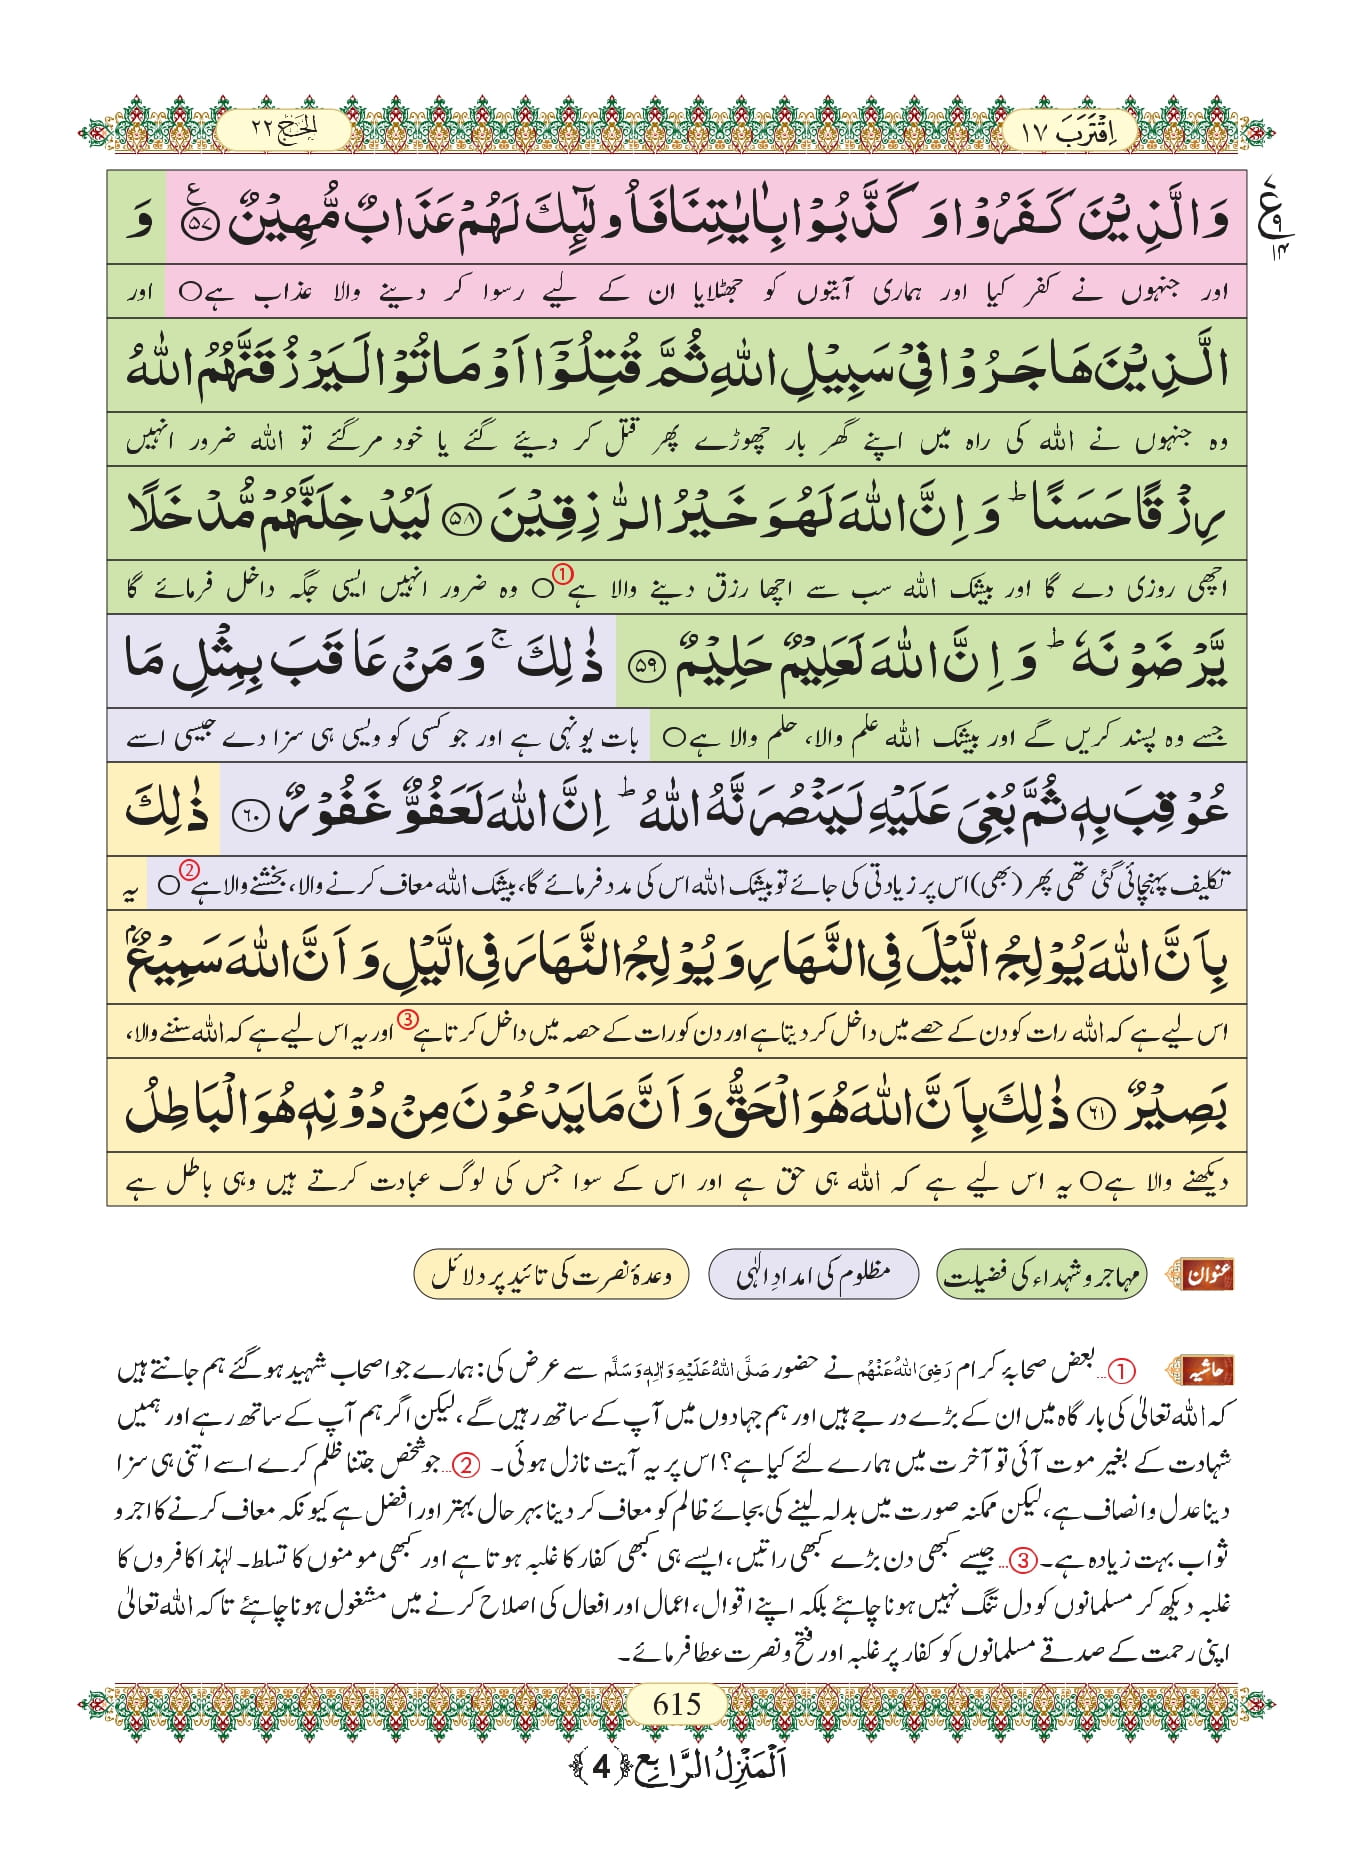 اِقْتَرَبَ ١٧
الحج ٢٢
ع ٩ ١٤
وَ الَّذِیْنَ كَفَرُوْا وَ كَذَّبُوْا بِاٰیٰتِنَا فَاُولٰٓىٕكَ لَهُمْ عَذَابٌ مُّهِیْنٌ ۠ ﴿۵۷﴾ وَ
اور جنہوں نے کفر کیا اور ہماری آیتوں کو جھٹلایا ان کے لیے رسوا کر دینے والا عذاب ہے○ اور
الَّذِیْنَ هَاجَرُوْا فِیْ سَبِیْلِ اللّٰهِ ثُمَّ قُتِلُوْۤا اَوْ مَاتُوْا لَیَرْزُقَنَّهُمُ اللّٰهُ
وہ جنہوں نے اللہ کی راہ میں اپنے گھر بار چھوڑے پھر قتل کر دیئے گئے یا خود مرگئے تو اللہ ضرور انہیں
رِزْقًا حَسَنًاؕ وَ اِنَّ اللّٰهَ لَهُوَ خَیْرُ الرّٰزِقِیْنَ ﴿۵۸﴾ لَیُدْخِلَنَّهُمْ مُّدْخَلًا
اچھی روزی دے گا اور بیشک اللہ سب سے اچھا رزق دینے والا ہے① ○ وہ ضرور انہیں ایسی جگہ داخل فرمائے گا
یَّرْضَوْنَهٗؕ وَ اِنَّ اللّٰهَ لَعَلِیْمٌ حَلِیْمٌ ﴿۵۹﴾ ذٰلِكَۚ وَ مَنْ عَاقَبَ بِمِثْلِ مَا
جسے وہ پسند کریں گے اور بیشک اللہ علم والا، حلم والا ہے○ بات یونہی ہے اور جو کسی کو ویسی ہی سزا دے جیسی اسے
عُوْقِبَ بِهٖ ثُمَّ بُغِیَ عَلَیْهِ لَیَنْصُرَنَّهُ اللّٰهُؕ اِنَّ اللّٰهَ لَعَفُوٌّ غَفُوْرٌ ﴿۶۰﴾ ذٰلِكَ
تکلیف پہنچائی گئی تھی پھر (بھی) اس پر زیادتی کی جائے تو بیشک اللہ اس کی مدد فرمائے گا، بیشک اللہ معاف کرنے والا، بخشنے والا ہے② ○ یہ
بِاَنَّ اللّٰهَ یُوْلِجُ الَّیْلَ فِی النَّهَارِ وَ یُوْلِجُ النَّهَارَ فِی الَّیْلِ وَ اَنَّ اللّٰهَ سَمِیْعٌۢ
اس لیے ہے کہ اللہ رات کو دن کے حصے میں داخل کر دیتا ہے اور دن کو رات کے حصہ میں داخل کرتا ہے③ اور یہ اس لیے ہے کہ اللہ سننے والا،
بَصِیْرٌ ﴿۶۱﴾ ذٰلِكَ بِاَنَّ اللّٰهَ هُوَ الْحَقُّ وَ اَنَّ مَا یَدْعُوْنَ مِنْ دُوْنِهٖ هُوَ الْبَاطِلُ
دیکھنے والا ہے○ یہ اس لیے ہے کہ اللہ ہی حق ہے اور اس کے سوا جس کی لوگ عبادت کرتے ہیں وہی باطل ہے
عنوان مہاجر و شہداء کی فضیلت مظلوم کی امدادِ الٰہی وعدۂ نصرت کی تائید پر دلائل
حاشیہ ①... بعض صحابۂ کرام رَضِیَ اللہُ عَنْہُم نے حضور صَلَّی اللہُ عَلَیْہِ وَاٰلِہٖ وَسَلَّم سے عرض کی: ہمارے جو اصحاب شہید ہوگئے ہم جانتے ہیں
کہ اللہ تعالیٰ کی بارگاہ میں ان کے بڑے درجے ہیں اور ہم جہادوں میں آپ کے ساتھ رہیں گے، لیکن اگر ہم آپ کے ساتھ رہے اور ہمیں
شہادت کے بغیر موت آئی تو آخرت میں ہمارے لئے کیا ہے؟ اس پر یہ آیت نازل ہوئی۔ ②... جو شخص جتنا ظلم کرے اسے اتنی ہی سزا
دینا عدل و انصاف ہے، لیکن ممکنہ صورت میں بدلہ لینے کی بجائے ظالم کو معاف کر دینا بہر حال بہتر اور افضل ہے کیونکہ معاف کرنے کا اجر و
ثواب بہت زیادہ ہے۔ ③... جیسے کبھی دن بڑے کبھی راتیں، ایسے ہی کبھی کفار کا غلبہ ہوتا ہے اور کبھی مومنوں کا تسلط۔ لہٰذا کافروں کا
غلبہ دیکھ کر مسلمانوں کو دل تنگ نہیں ہونا چاہئے بلکہ اپنے اقوال، اعمال اور افعال کی اصلاح کرنے میں مشغول ہونا چاہئے تاکہ اللہ تعالیٰ
اپنی رحمت کے صدقے مسلمانوں کو کفار پر غلبہ اور فتح و نصرت عطا فرمائے۔
615
اَلْمَنْزِلُ الرَّابِع ﴿4﴾